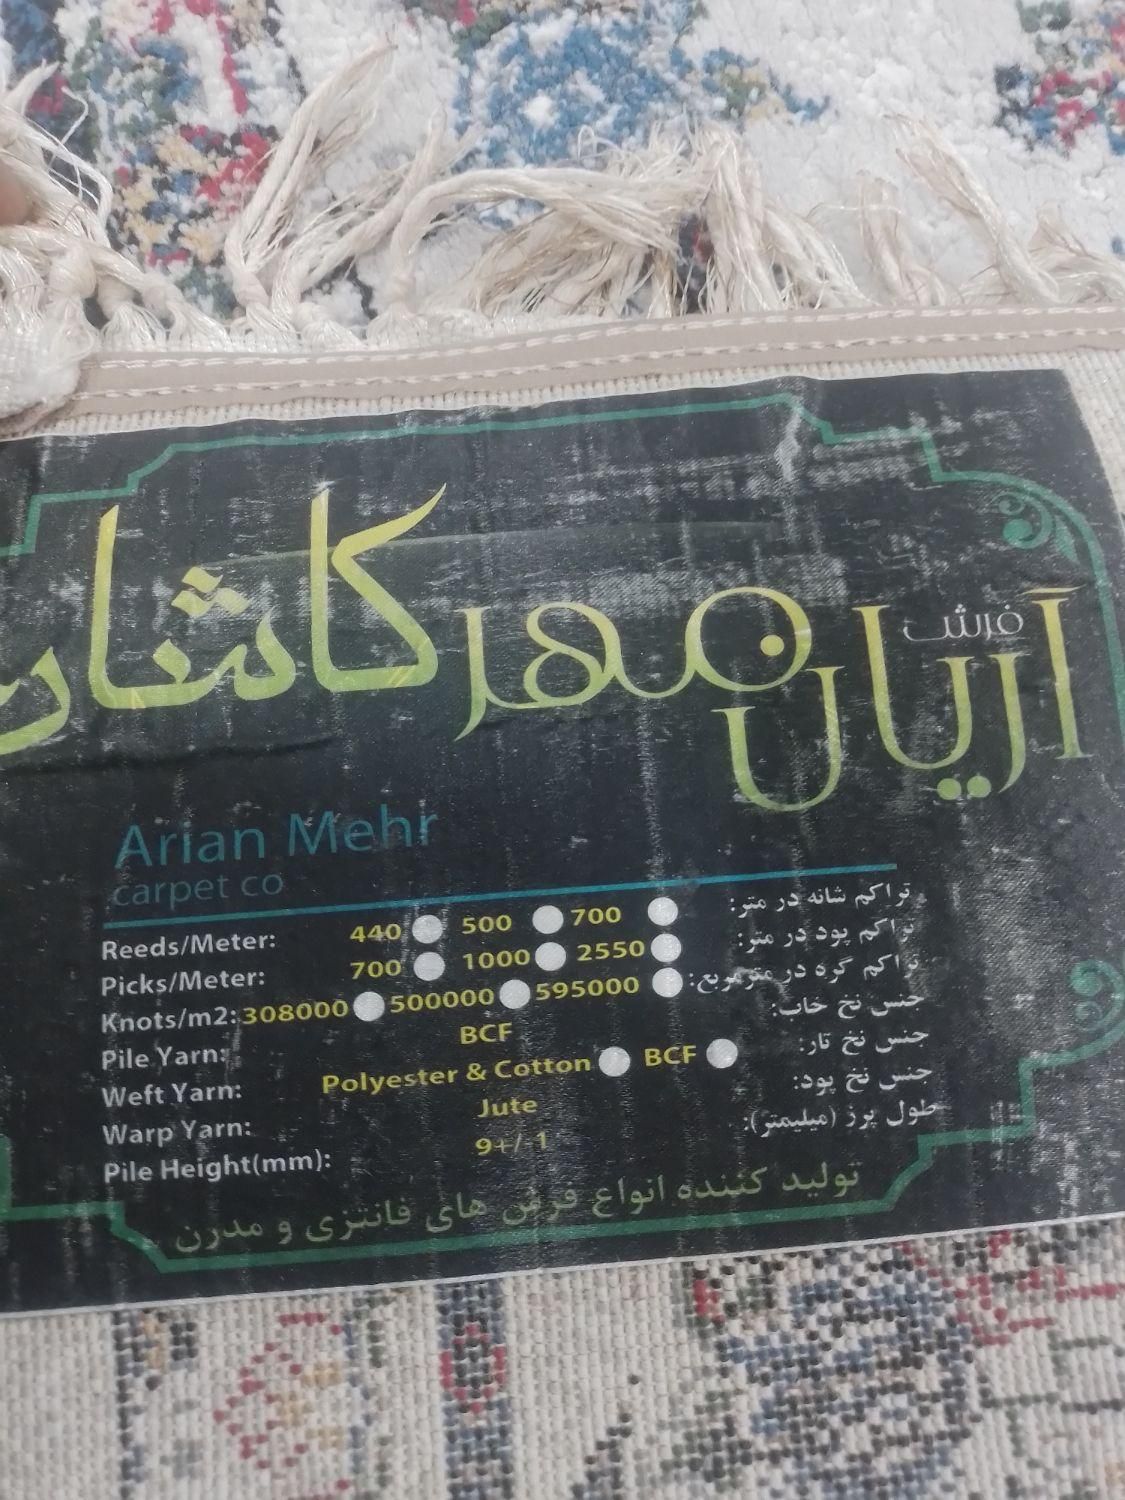 فرش
آریان مهر کاشان
Arian Mehr
carpet co
Reeds/Meter: 440 500 700 تراکم شانه در متر:
Picks/Meter: 700 1000 2550 تراکم پود در متر:
Knots/m2: 308000 500000 595000 تراکم گره در مترمربع:
Pile Yarn: BCF جنس نخ خاب:
Weft Yarn: Polyester & Cotton BCF جنس نخ تار:
Warp Yarn: Jute جنس نخ پود:
Pile Height(mm): 9+/ 1 طول پرز (میلیمتر):
تولید کننده انواع فرش های فانتزی و مدرن